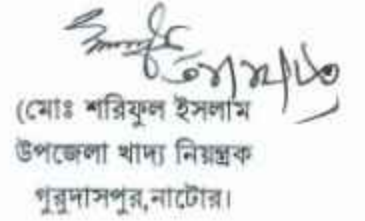 (মোঃ শরিফুল ইসলাম
উপজেলা খাদ্য নিয়ন্ত্রক
গুরুদাসপুর,নাটোর।